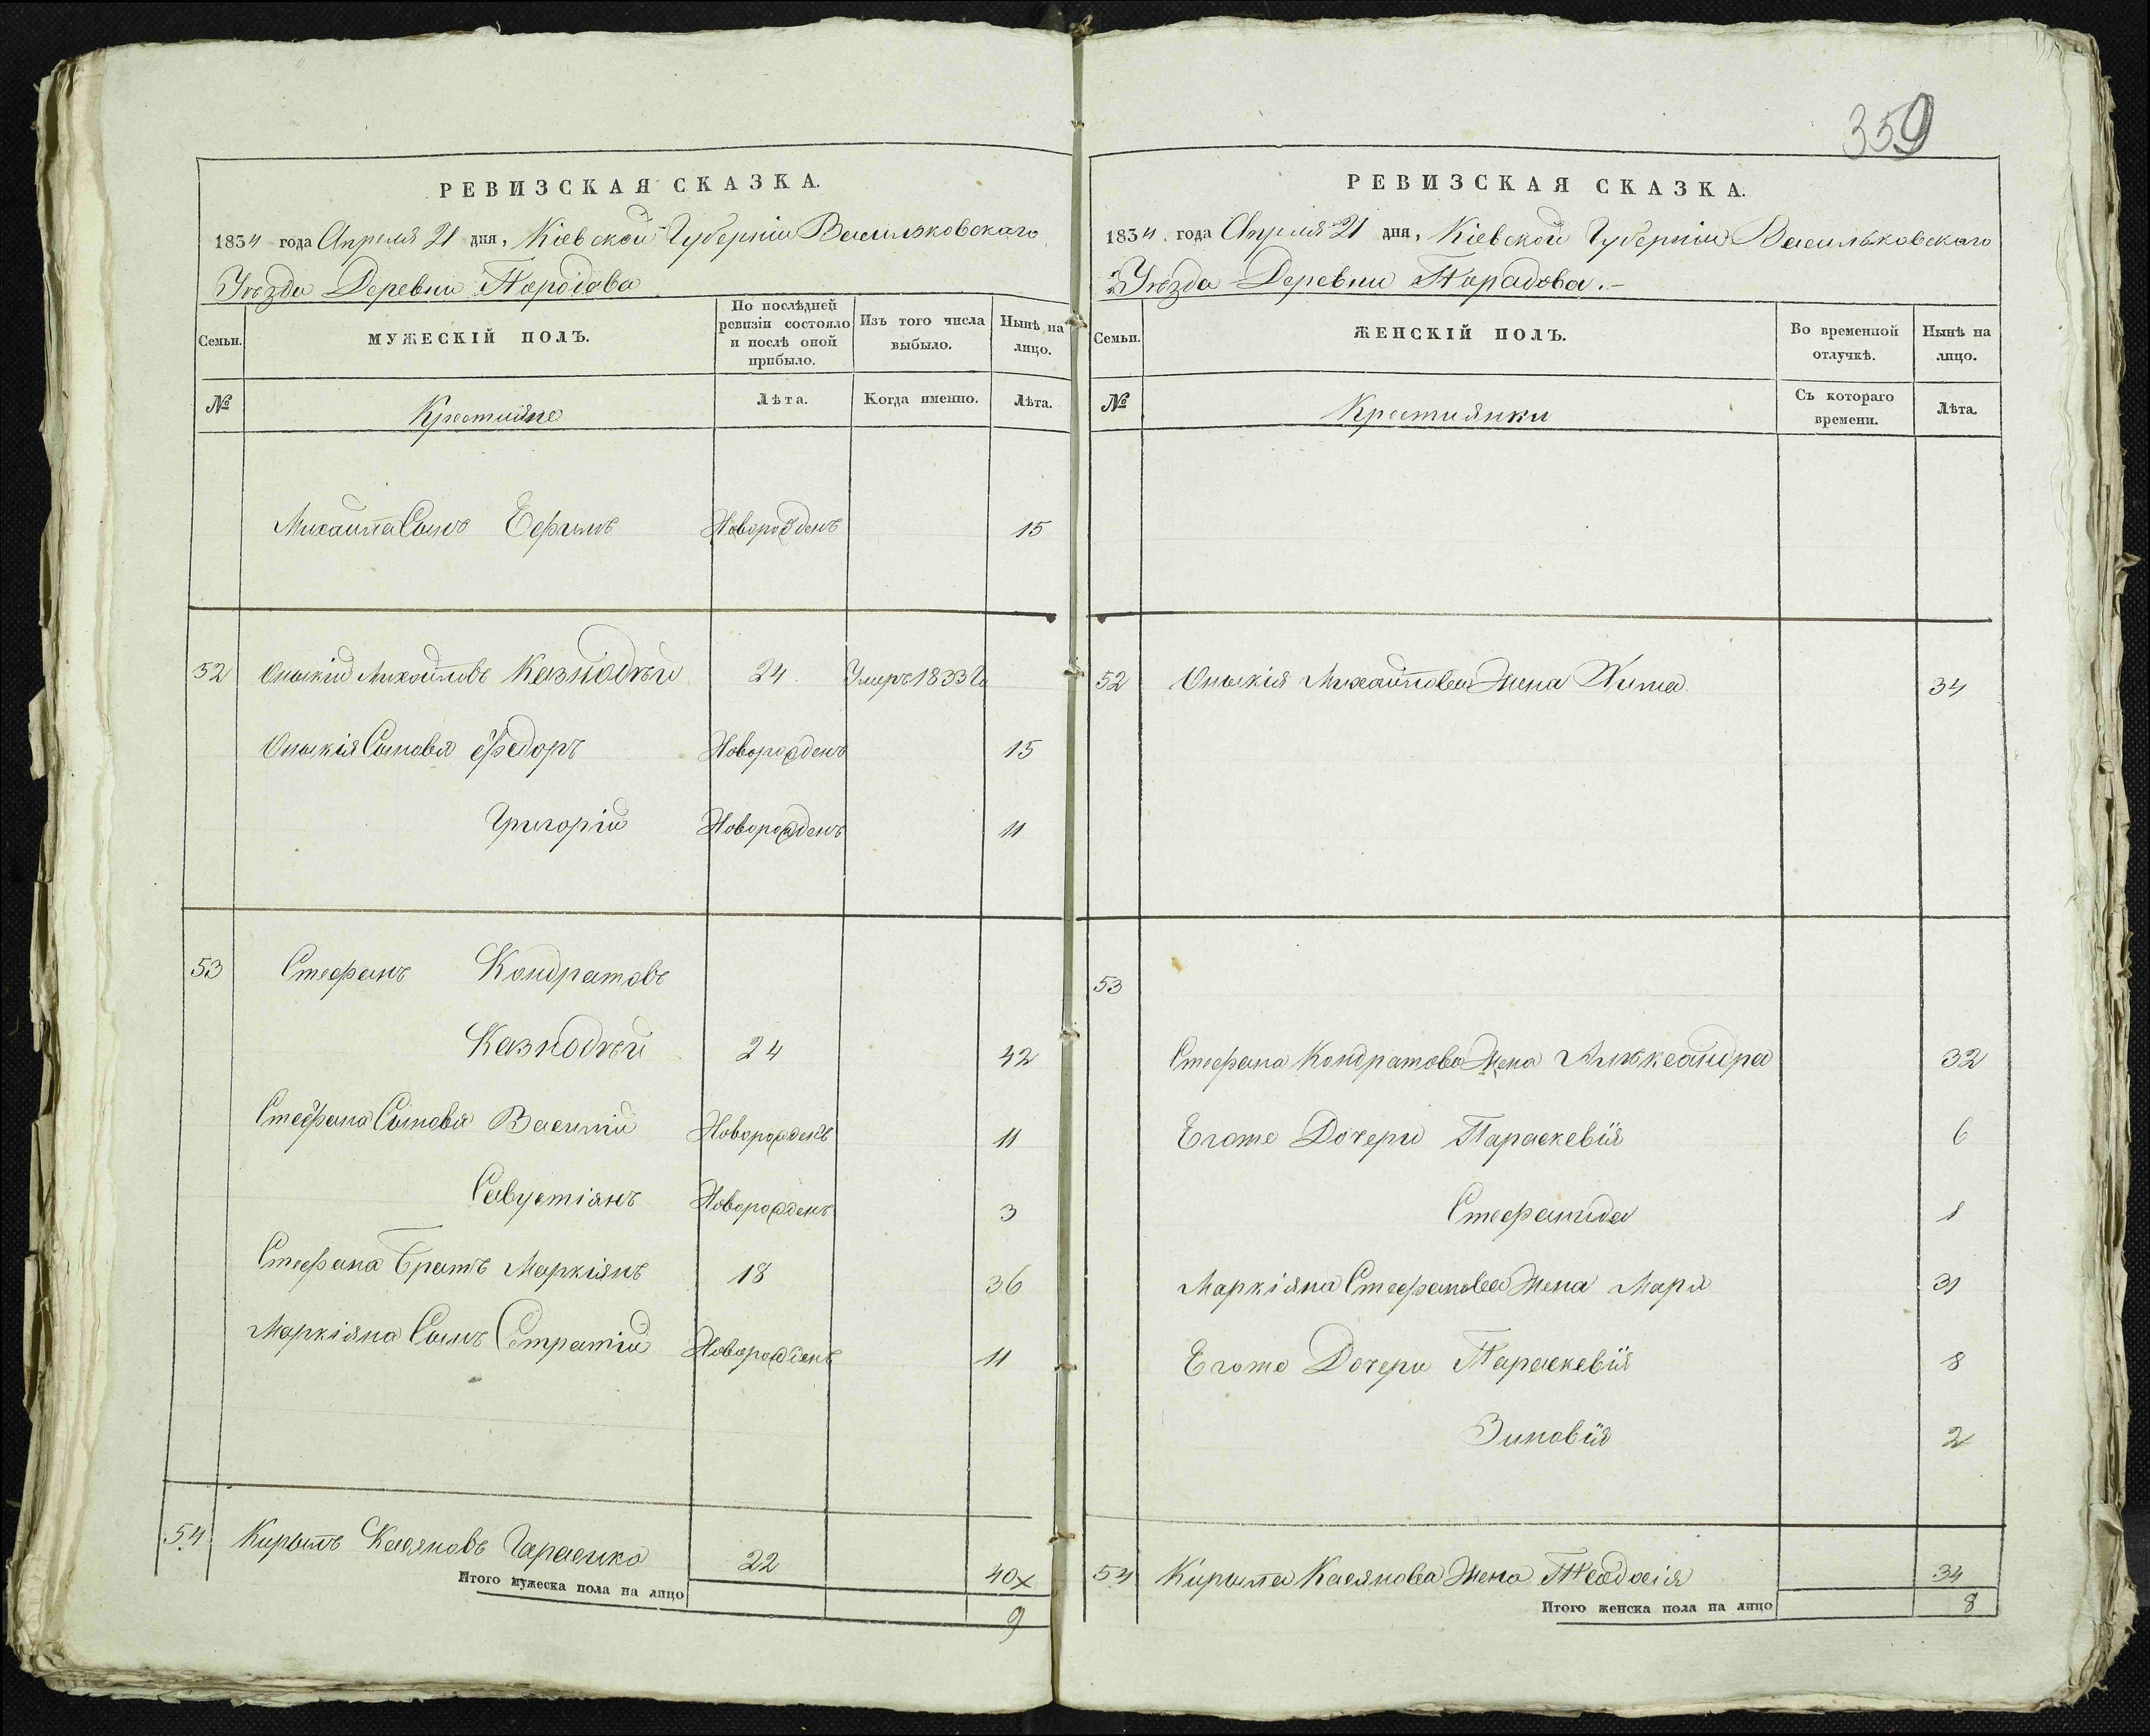 359
РЕВИЗСКАЯ СКАЗКА.
1834 года Апреля 21 дня, Кіевской Губерніи Васильковскаго
Уѣзда Деревни Пародова
Семьи.
МУЖЕСКІЙ ПОЛЪ.
По послѣдней ревизіи состояло и послѣ оной прибыло.
Изъ того числа выбыло.
Нынѣ на лицо.
№
Крестияне
Лѣта.
Когда именно.
Лѣта.
Михаила Сынъ Ефимъ Новорожденъ 15
52 Михайловъ Казнодѣй 24 Умеръ 1833 Го
Сыновя Федоръ Новорожденъ 15
Григорій Новорожденъ 11
53 Стефанъ Кондратовъ
Казнодѣй 24 42
Стефана Сыновя Василій Новорожденъ 11
Савустіянъ Новорожденъ 3
Стефана Братъ Маркіянъ 18 36
Маркіяна Сынъ Естратій Новорожденъ 11
54 Кирылъ Касяновъ Гарасико 22 40х
Итого мужеска пола на лицо 9
РЕВИЗСКАЯ СКАЗКА.
1834 года Апреля 21 дня, Кіевской Губерніи Васильковскаго
Уѣзда Деревни Парадова.-
Семьи.
ЖЕНСКІЙ ПОЛЪ.
Во временной отлучкѣ.
Нынѣ на лицо.
№
Крестиянки
Съ котораго времени.
Лѣта.
52 Михайлова Жена 34
53
Стефана Кондратова Жена Алѣксандра 32
Егоже Дочери Параскевія 6
Стефанида 1
Маркіяна Стефанова Жена Маря 31
Егоже Дочери Параскевія 8
Зиновія 2
54 Кирыла Касянова Жена Теодосія 34
Итого женска пола на лицо 8